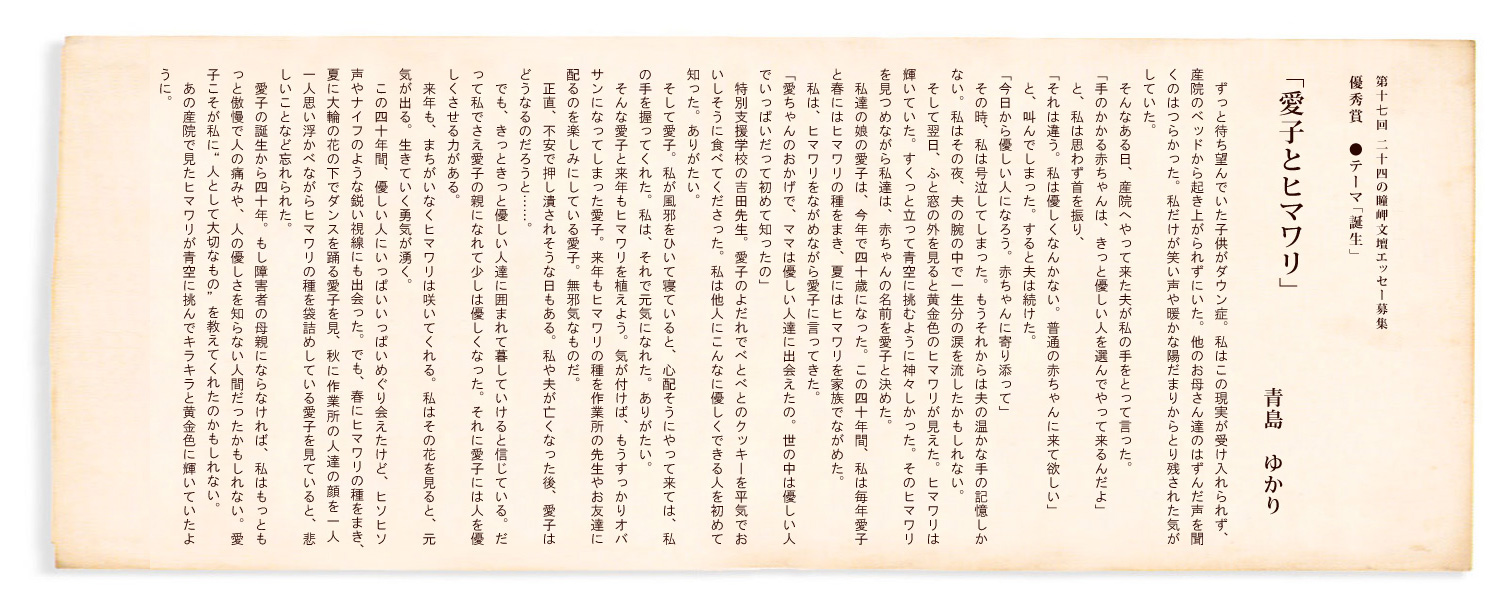 第十七回 二十四の瞳岬文壇エッセー募集
優秀賞 ●テーマ「誕生」
「愛子とヒマワリ」 青島 ゆかり
ずっと待ち望んでいた子供がダウン症。私はこの現実が受け入れられず、
産院のベッドから起き上がられずにいた。他のお母さん達のはずんだ声を聞
くのはつらかった。私だけが笑い声や暖かな陽だまりからとり残された気が
していた。
そんなある日、産院へやって来た夫が私の手をとって言った。
「手のかかる赤ちゃんは、きっと優しい人を選んでやって来るんだよ」
と、私は思わず首を振り、
「それは違う。私は優しくなんかない。普通の赤ちゃんに来て欲しい」
と、叫んでしまった。すると夫は続けた。
「今日から優しい人になろう。赤ちゃんに寄り添って」
その時、私は号泣してしまった。もうそれからは夫の温かな手の記憶しか
ない。私はその夜、夫の腕の中で一生分の涙を流したかもしれない。
そして翌日、ふと窓の外を見ると黄金色のヒマワリが見えた。ヒマワリは
輝いていた。すくっと立って青空に挑むように神々しかった。そのヒマワリ
を見つめながら私達は、赤ちゃんの名前を愛子と決めた。
私達の娘の愛子は、今年で四十歳になった。この四十年間、私は毎年愛子
と春にはヒマワリの種をまき、夏にはヒマワリを家族でながめた。
私は、ヒマワリをながめながら愛子に言ってきた。
「愛ちゃんのおかげで、ママは優しい人達に出会えたの。世の中は優しい人
でいっぱいだって初めて知ったの」
特別支援学校の吉田先生。愛子のよだれでべとべとのクッキーを平気でお
いしそうに食べてくださった。私は他人にこんなに優しくできる人を初めて
知った。ありがたい。
そして愛子。私が風邪をひいて寝ていると、心配そうにやって来ては、私
の手を握ってくれた。私は、それで元気になれた。ありがたい。
そんな愛子と来年もヒマワリを植えよう。気が付けば、もうすっかりオバ
サンになってしまった愛子。来年もヒマワリの種を作業所の先生やお友達に
配るのを楽しみにしている愛子。無邪気なものだ。
正直、不安で押し潰されそうな日もある。私や夫が亡くなった後、愛子は
どうなるのだろうと……。
でも、きっときっと優しい人達に囲まれて暮していけると信じている。だ
って私でさえ愛子の親になれて少しは優しくなった。それに愛子には人を優
しくさせる力がある。
来年も、まちがいなくヒマワリは咲いてくれる。私はその花を見ると、元
気が出る。生きていく勇気が湧く。
この四十年間、優しい人にいっぱいいっぱいめぐり会えたけど、ヒソヒソ
声やナイフのような鋭い視線にも出会った。でも、春にヒマワリの種をまき、
夏に大輪の花の下でダンスを踊る愛子を見、秋に作業所の人達の顔を一人
一人思い浮かべながらヒマワリの種を袋詰めしている愛子を見ていると、悲
しいことなど忘れられた。
愛子の誕生から四十年。もし障害者の母親にならなければ、私はもっとも
っと傲慢で人の痛みや、人の優しさを知らない人間だったかもしれない。愛
子こそが私に“人として大切なもの”を教えてくれたのかもしれない。
あの産院で見たヒマワリが青空に挑んでキラキラと黄金色に輝いていたよ
うに。